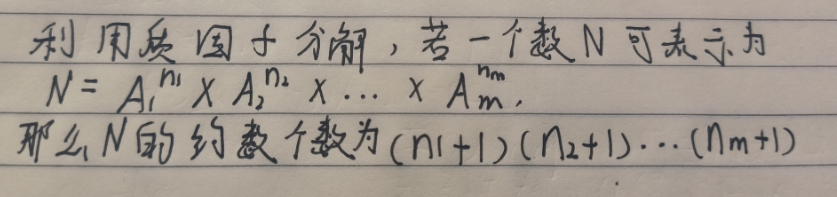 利用质因子分解,若一个数N可表示为
N = A₁ⁿ¹ × A₂ⁿ² × ... × Aₘⁿᵐ,
那么N的约数个数为(n1+1)(n₂+1)...(nm+1)